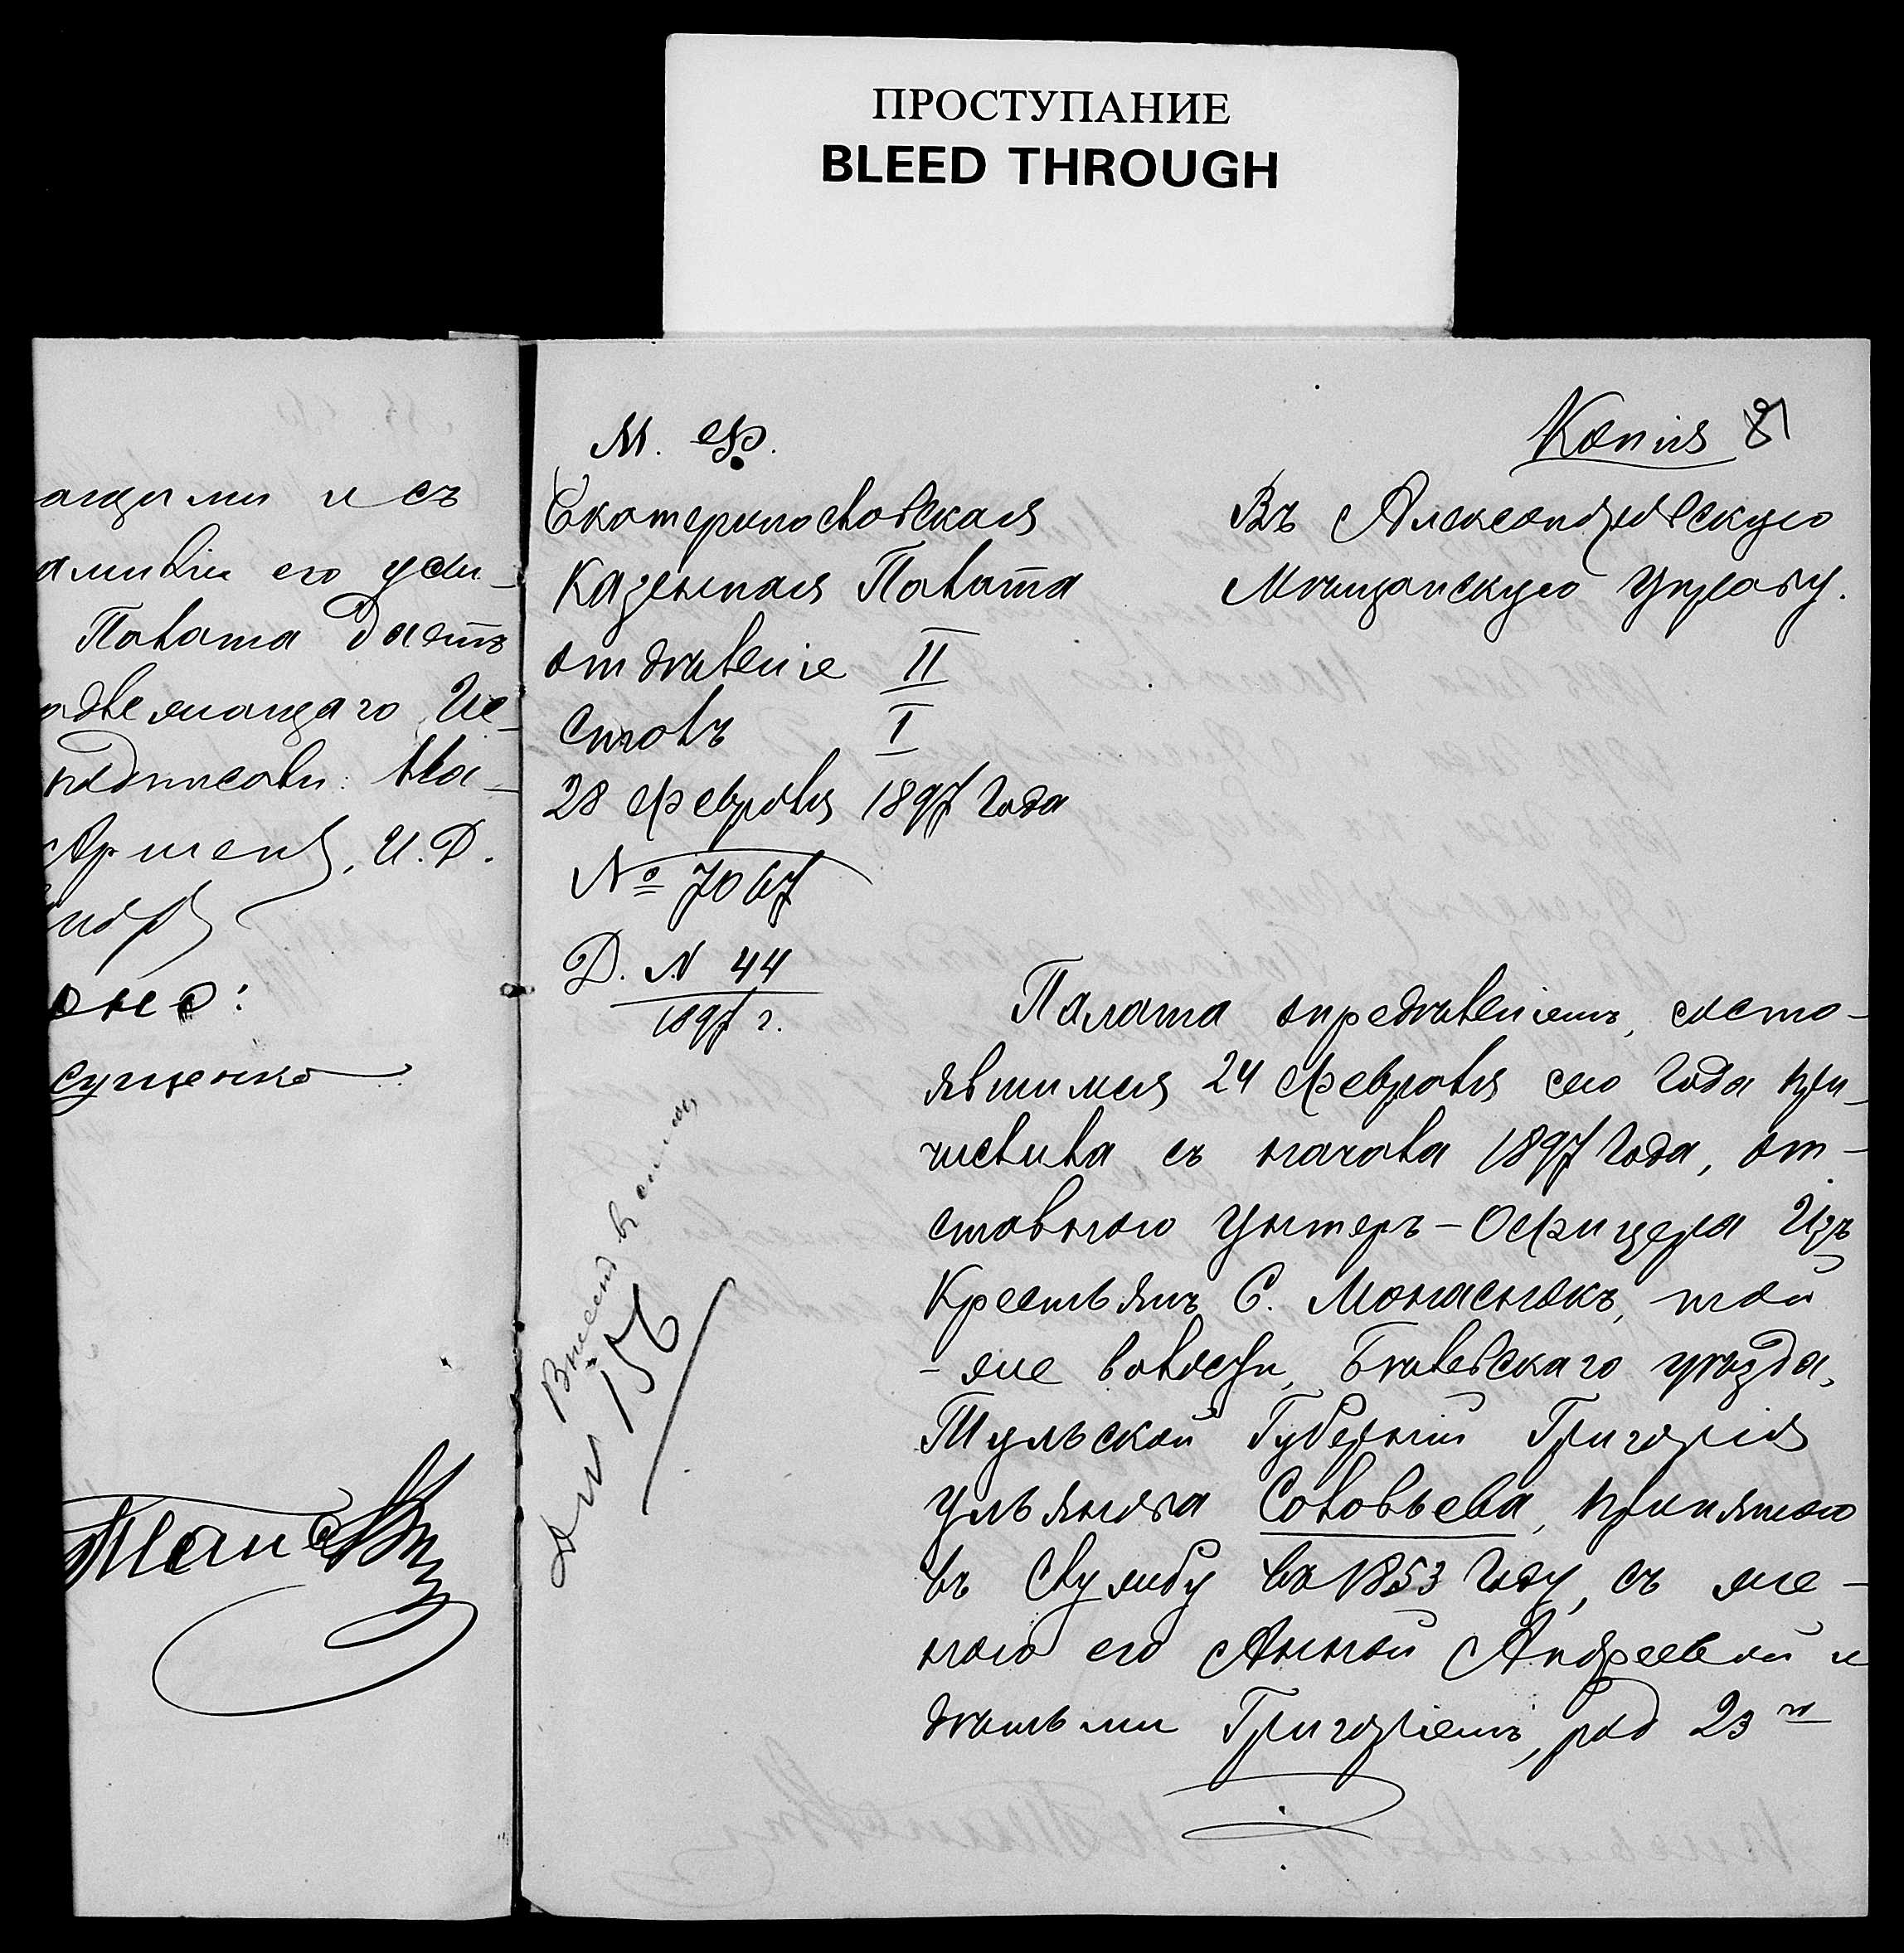 ПРОСТУПАНИЕ
BLEED THROUGH
ащими и съ
его
Палата даетъ
Ис-
подписали: На-
И. Д.
оно:
сущенко
Копія 81
М. Ф.
Екатеринославская
Казенная Палата
отдѣленіе II
столъ I
28 февраля 1897 года
№ 7067
Д. N 44
1897 г.
Въ Александровскую
Мѣщанскую Управу.
Внесенъ въ
156
Палата опредѣленіемъ, состо-
явшимся 24 февраля сего года при-
числила съ начала 1897 года, от-
ставного Унтеръ-Офицера Изъ
Крестьянъ С. Монаенокъ, той
-же волости, Бѣлевскаго уѣзда,
Тульской Губерніи Григорія
Ульянова Соловьева, принятого
въ службу въ 1853 году, съ же-
ною его Анной Андреевной и
дѣтьми Григоріемъ, род 23 го